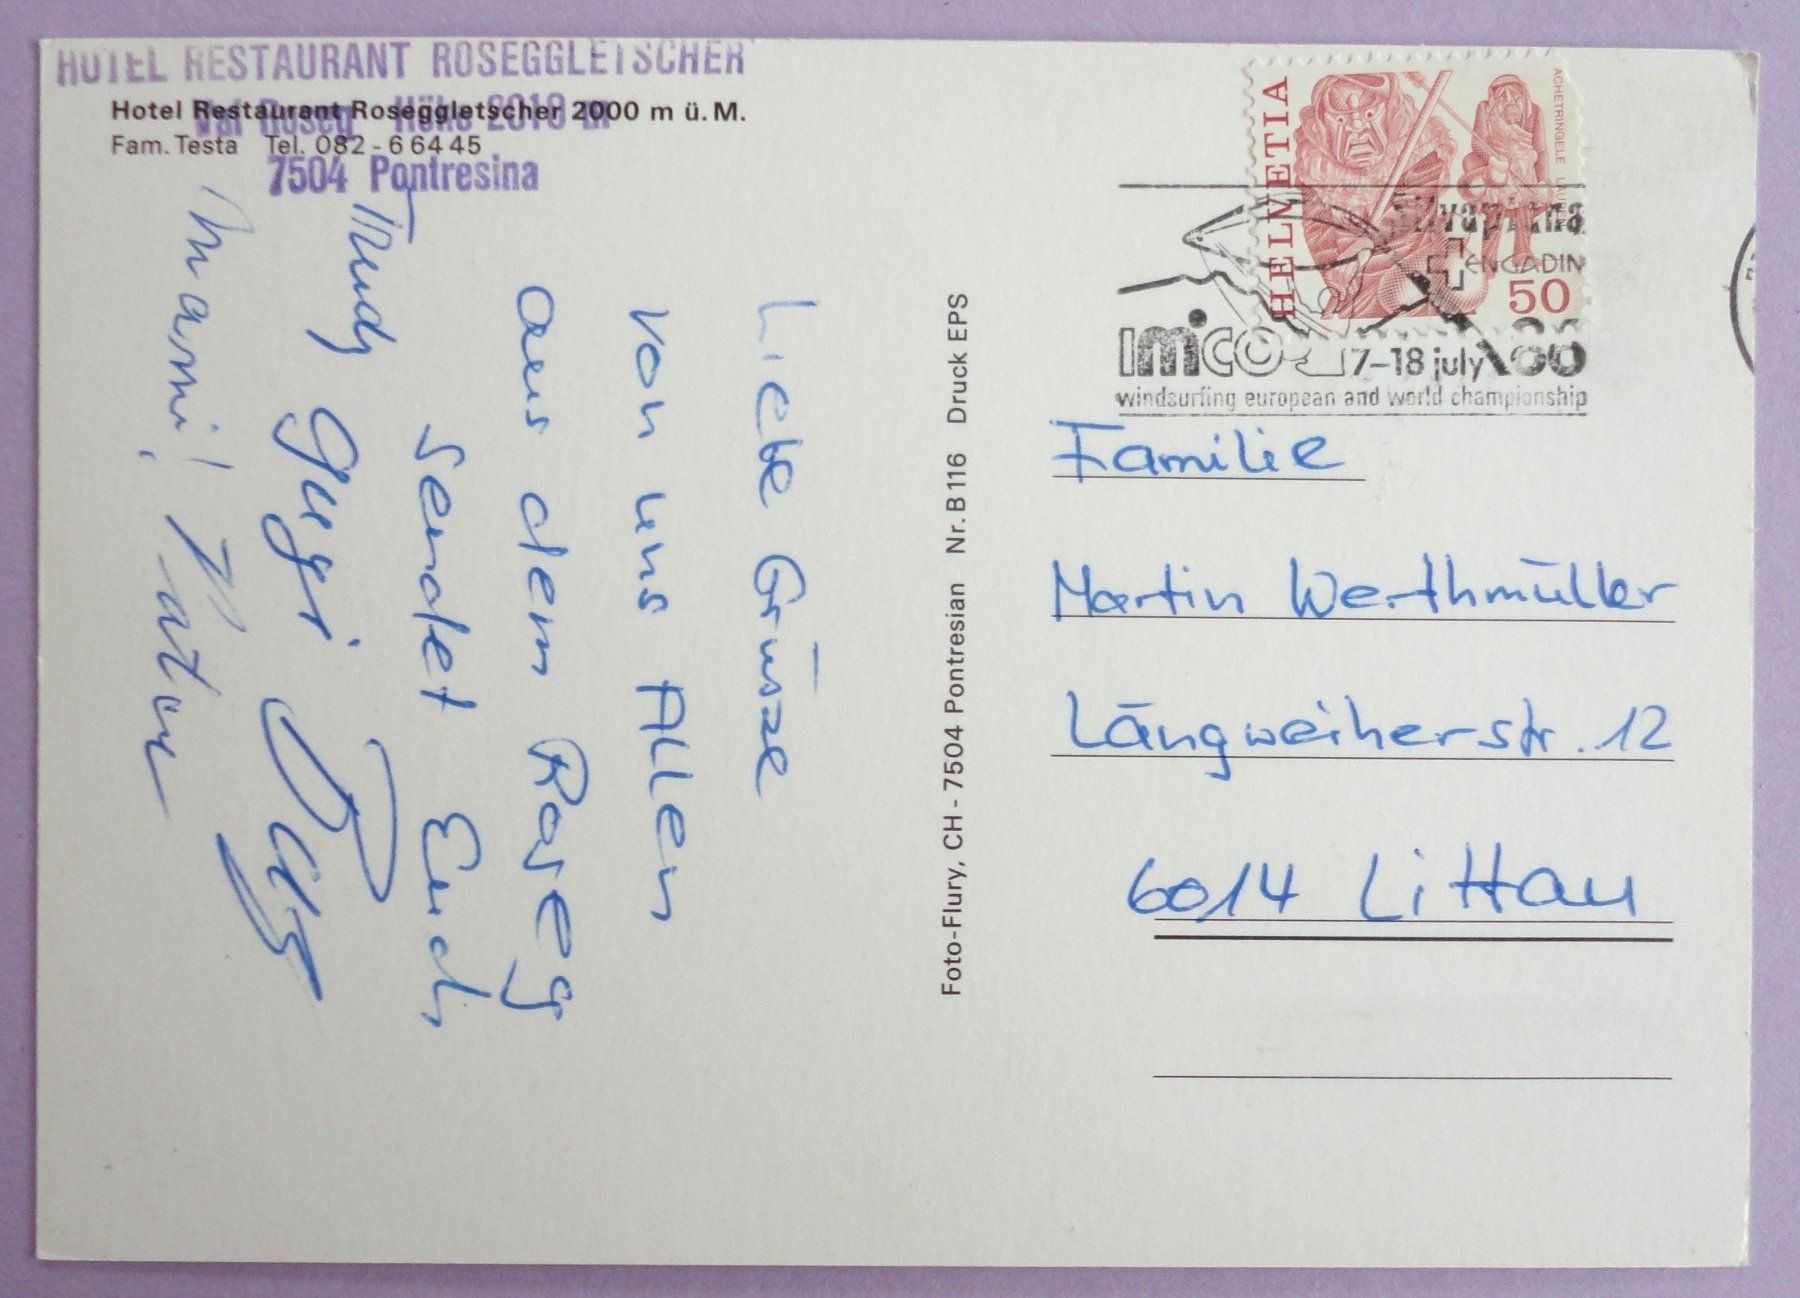 HOTEL RESTAURANT ROSEGGLETSCHER
Val Roseg Höhe 2010 m
7504 Pontresina
Hotel Restaurant Roseggletscher 2000 m ü. M.
Fam. Testa Tel. 082 - 6 64 45
Liebe Grüsse
von uns Allen
aus dem Roseg
sendet Euch
Trudy
Mami!
Foto-Flury, CH - 7504 Pontresian Nr. B 116 Druck EPS
HELVETIA
ACHETRINGELE LAUPEN
50
Silvaplana
ENGADIN
imco 7–18 july
windsurfing european and world championship
Familie
Martin Werthmüller
Längweiherstr. 12
6014 Littau